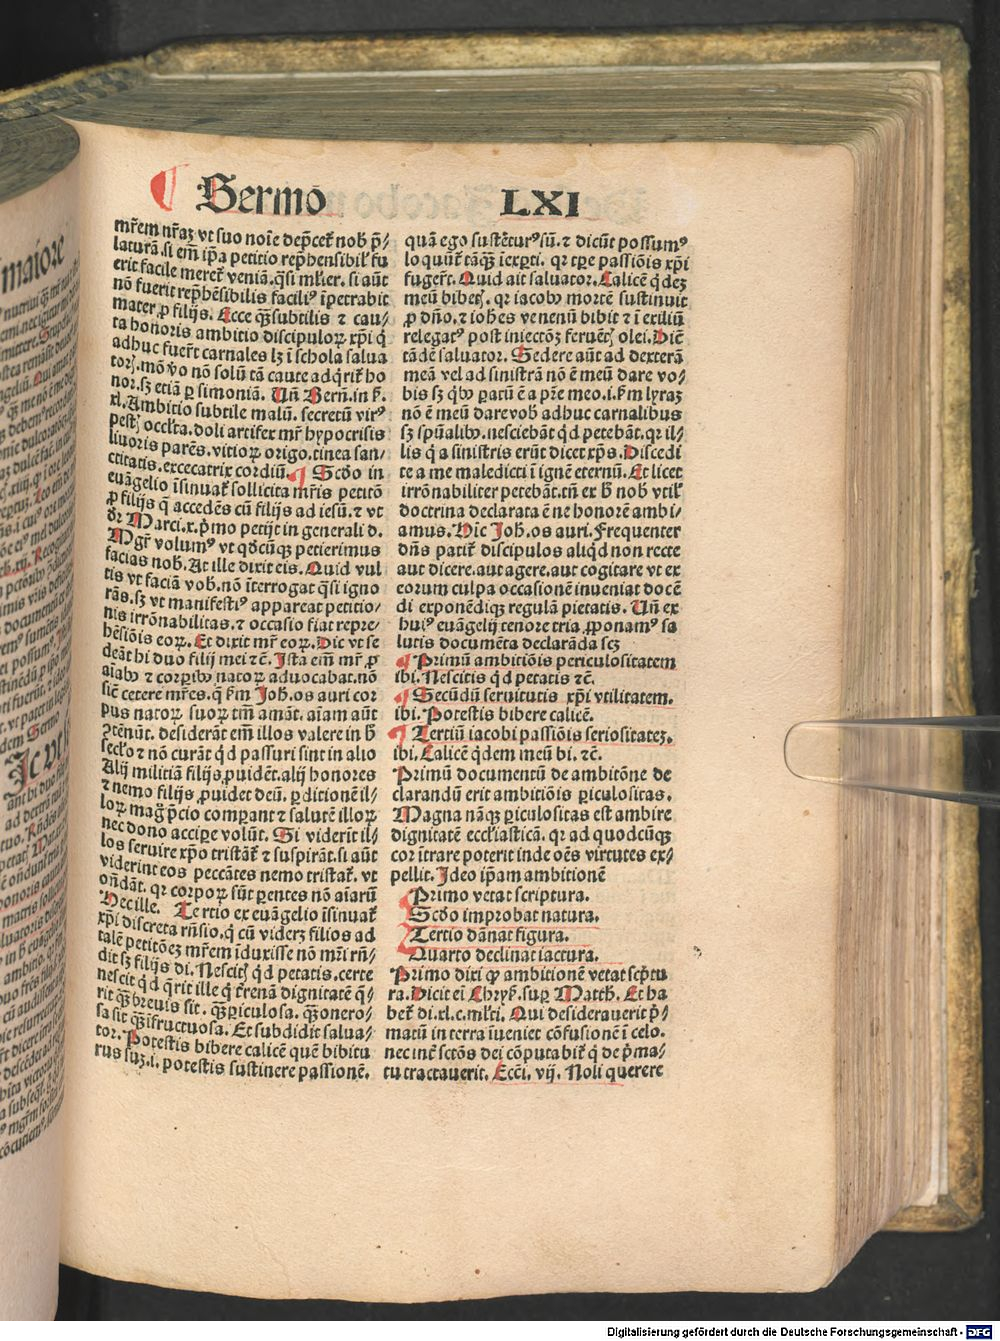 Sermo LXI
mr̄em nr̄aꝫ vt suo noīe dep̄cet᷑ nob̄ p̄/
laturā. si em̄ ip̄a petitio rep̄hensibilꝭ fu
erit facile meret᷑ veniā. q̄si ml̄ier. si aūt
nō fuerit rep̄hēsibilis faciliꝰ īpetrabit
mater ꝓ filijs. Ecce qꝫ subtilis ⁊ cau/
ta honoris ambitio discipuloꝝ xp̄i q̄
adhuc fuer̄t carnales lꝫ ī schola salua
torꝭ. mō v̄o nō solū tā caute adq̄rit᷑ ho
nor. sꝫ etiā ꝑ simoniā. Un̄ Bern̄. in ẜ.
xl. Ambitio subtile malū. secretū virꝰ
pestꝭ occl̄ta. doli artifex mr̄ hypocrisis
liuoris parēs. vitioꝝ origo. tinea san/
ctitatis. excecatrix cordiū. ¶ Scd̄o in
euāgelio īsinuat᷑ sollicita mr̄is petitō
ꝓ filijs q̄ accedēs cū filijs ad iesū. ⁊ vt
dr̄ Marci. x. p̄mo petijt in generali d.
Mgr̄ volumꝰ vt qd̄cūqꝫ petierimus
facias nob̄. At ille dixit eis. Quid vul
tis vt faciā vob̄. nō īterrogat q̄si igno
rās. sꝫ vt manifestiꝰ appareat petitio/
nis irrōnabilitas. ⁊ occasio fiat repre/
hēsiōis eoꝝ. Et dixit mr̄ eoꝝ. Dic vt se
deāt hi duo filij mei ⁊c̄. Ista em̄ mr̄ ꝓ
aīabꝫ ⁊ corꝑibꝫ natoꝝ aduocabat. nō
sic̄ cetere mr̄es. q̄ ẜm Joh̄. os auri cor
pus natoꝝ suoꝝ tm̄ amāt. aīam aūt
ꝯtēnūt. desiderāt em̄ illos valere in h̄
secl̄o ⁊ nō curāt qd̄ passuri sint in alio
Alij militiā filijs ꝓuidēt. alij honores
⁊ nemo filijs ꝓuidet deū. ꝑditionē il/
loꝝ mag̊ p̄cio comꝑant ⁊ salutē illoꝝ
nec dono acciꝑe volūt. Si viderit il/
los seruire xp̄o tristāt᷑ ⁊ suspirāt. si aūt
viderint eos peccātes nemo tristat᷑. vt
oñdāt. qꝛ corpoꝝ sūt ꝑentes nō aīarū
Hec ille. Tertio ex euāgelio īsinuat᷑
xp̄i discreta rn̄sio. q̄ cū viderꝫ filios ad
talē petitōeꝫ mr̄em īduxisse nō mr̄i rn̄/
dit sꝫ filijs di. Nescitꝭ qd̄ petatis. certe
nescit qd̄ q̄rit ille q̄ t̄renā dignitatē q̄/
rit qꝫ breuis sit. qꝫ ꝑiculosa. qꝫ onero/
sa sit qꝫ īfructuosa. Et subdidit salua/
tor. Potestis bibere calicē quē bibitu
rus suꝫ. i. potestis sustinere passionē.
quā ego sustētur ꝰ sū. ⁊ dicūt possumꝰ
loquūt᷑ tāqꝫ īexꝑti. qꝛ tꝑe passiōis xp̄i
fuger̄t. Quid ait saluator. Calicē qd̄eꝫ
meū bibetꝭ. qꝛ iacobꝰ mortē sustinuit
ꝓ dn̄o. ⁊ ioh̄es venenū bibit ⁊ ī exiliū
relegatꝰ post iniectōꝫ feruētꝭ olei. Dic̄
tādē saluator. Sedere aūt ad dexterā
meā vel ad sinistrā nō ē meū dare vo/
bis sꝫ qibꝫ ꝑatū ē a pr̄e meo. i. ẜm lyraꝫ
nō ē meū dare vob̄ adhuc carnalibus
sꝫ spūalibꝫ. nesciebāt qd̄ petebāt. qꝛ il/
lis q̄ a sinistris erūt dicet xp̄s. Discedi
te a me maledicti ī ignē eternū. Et licet
irrōnabiliter petebāt. tn̄ ex h̄ nob̄ vtilꝭ
doctrina declarata ē ne honorē ambi/
amus. Dic̄ Joh̄. os auri. Frequenter
dn̄s patit᷑ discipulos aliqd̄ non recte
aut dicere. aut agere. aut cogitare vt ex
eorum culpa occasionē inueniat docē
di exponēdiqꝫ regulā pietatis. Un̄ ex
huiꝰ euāgelij tenore tria ꝓponamꝰ sa
lutis documēta declarāda scꝫ
¶ Primū ambitiōis periculositatem
ibi. Nescitis qd̄ petatis ⁊c̄.
¶ Secūdū seruitutis xp̄i vtilitatem.
ibi. Potestis bibere calicē.
¶ Tertiū iacobi passiōis seriositateꝫ.
ibi. Calicē qd̄em meū bi. ⁊c̄.
Primū documentū de ambitōne de
clarandū erit ambitiōis ꝑiculositas.
Magna nāqꝫ ꝑiculositas est ambire
dignitatē eccl̄iasticā. qꝛ ad quodcūqꝫ
cor ītrare poterit inde oēs virtutes ex/
pellit. Ideo ip̄am ambitionē
Primo vetat scriptura.
Scd̄o improbat natura.
Tertio dānat figura.
Quarto declinat iactura.
Primo dixi ꝙ ambitionē vetat scp̄tu
ra. Dicit em̄ Chryẜ. suꝑ Matth̄. Et ha
bet᷑ di. xl. c. ml̄ti. Qui desiderauerit p̄/
matū in terra īueniet cōfusionē ī celo.
nec int̄ sctōs dei cōputabit᷑ q̄ de p̄ma/
tu tractauerit. Ecc̄i. vij. Noli querere
Digitalisierung gefördert durch die Deutsche Forschungsgemeinschaft - DFG